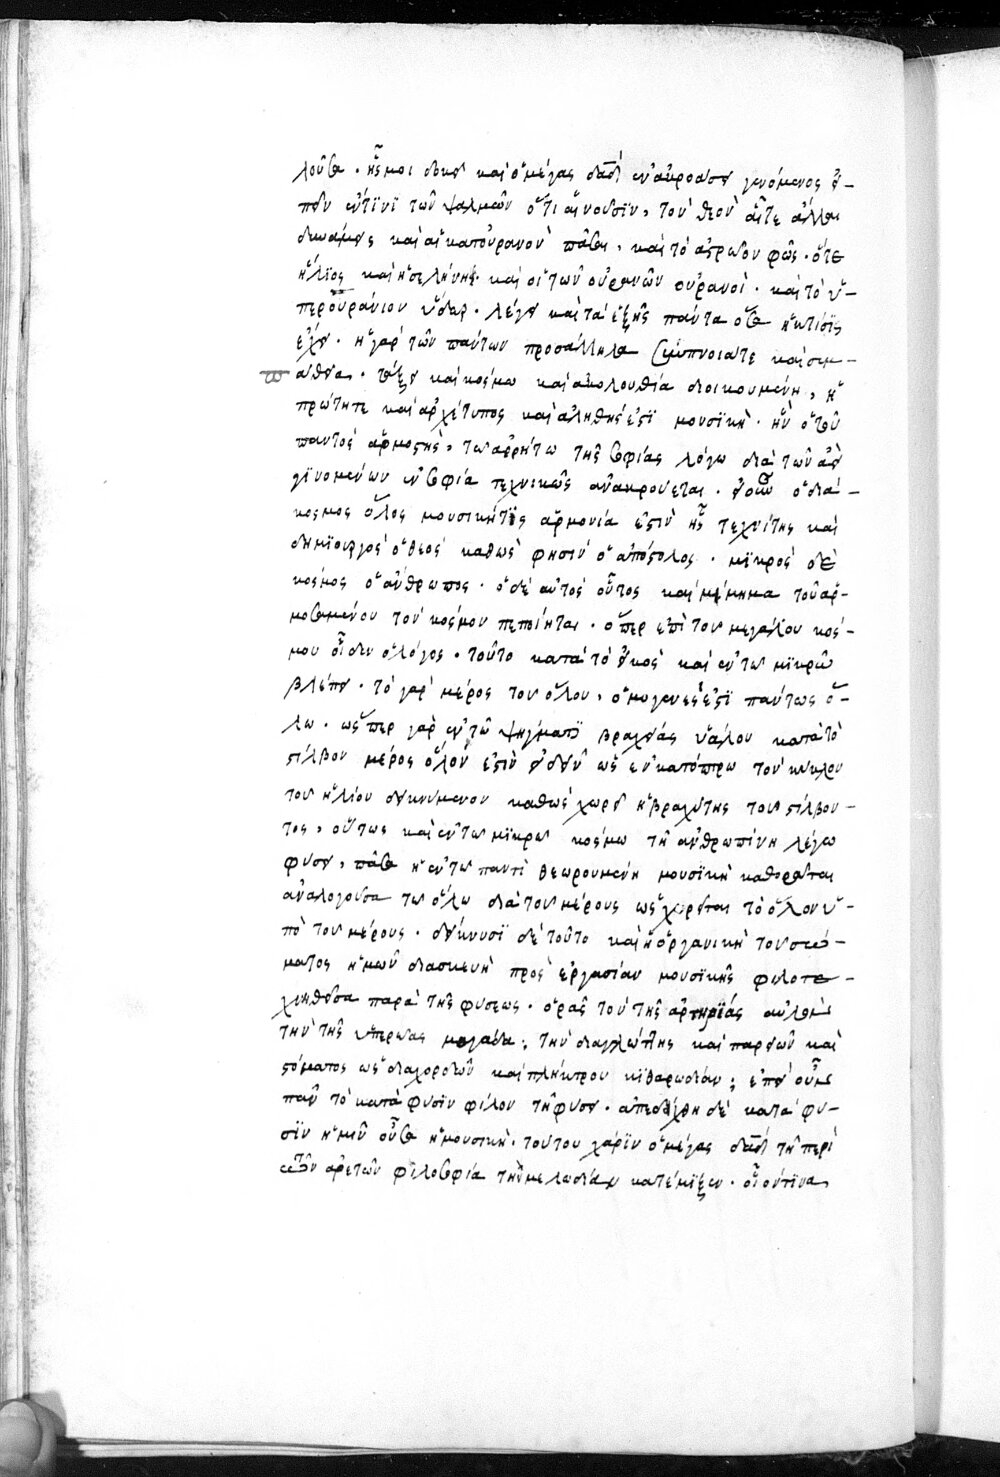 λοῦσα · ἧς μοι δοκεῖ καὶ ὁ μέγας δαδ ἐν ἀκροάσει γενόμενος εἰ-
πεῖν ἐν τινὶ τῶν ψαλμῶν ὅτι αἰνοῦσιν, τὸν θεὸν αἵτε ἄλλαι
δυνάμεις καὶ αἱ κατ οὐρανὸν πᾶσαι, καὶ τὸ ἀστρῶον φῶς · ὅτε
ἥλιος καὶ ἡ σελήνη · καὶ οἱ τῶν οὐρανῶν οὐρανοὶ · καὶ τὸ ὑ-
περουράνιον ὕδωρ · λέγει καὶ τὰ ἑξῆς πάντα ὅσα ἡ κτίσις
ἔχει · ἡ γὰρ τῶν πάντων πρὸς ἄλληλα σύμπνοιά τε καὶ συμ-
πάθεια · τάξει καὶ κόσμω καὶ ἀκολουθία διοικουμένη, ἡ
πρώτη τε καὶ ἀρχέτυπος καὶ ἀληθής ἐστι μουσικὴ · ἣν ὁ τοῦ
παντὸς ἁρμοστὴς, τῶ ἀρρήτω τῆς σοφίας λόγω διὰ τῶν ἀεὶ
γινομένων ἐν σοφία τεχνικῶς ἀνακρούεται · εἰ οὖν ὁ διά-
κοσμος ὅλος μουσική τις ἁρμονία ἐστὶν ἧς τεχνίτης καὶ
δημιουργὸς ὁ θεὸς καθώς φησιν ὁ ἀπόστολος · μικρὸς δὲ
κόσμος ὁ ἄνθρωπος · ὁ δὲ αὐτὸς οὗτος καὶ μίμημα τοῦ ἁρ-
μοσαμένου τὸν κόσμον πεποίηται · ὅπερ ἐπὶ τοῦ μεγάλου κόσ-
μου οἶδεν ὁ λόγος · τοῦτο κατὰ τὸ εἰκὸς καὶ ἐν τῶ μικρῶ
βλέπει · τὸ γὰρ μέρος τοῦ ὅλου, ὁμογενές ἐστι πάντως ὅ-
λω · ὥσπερ γὰρ ἐν τῶ ψήγματι βραχείας ὑάλου κατὰ τὸ
στίλβον μέρος ὅλον ἐστὶν εἰδεῖν ὡς ἐν κατόπτρω τὸν κύκλον
τοῦ ἡλίου δεικνύμενον καθὼς χωρεῖ ἡ βραχύτης τοῦ στίλβον-
τος, οὕτως καὶ ἐν τῶ μικρῶ κόσμω τῆ ἀνθρωπίνη λέγω
φύσει, πᾶσα ἡ ἐν τῶ παντὶ θεωρουμένη μουσικὴ καθορᾶται
ἀναλογοῦσα τῶ ὅλω διὰ τοῦ μέρους ὡς χωρεῖται τὸ ὅλον ὑ-
πὸ τοῦ μέρους · δείκνυσι δὲ τοῦτο καὶ ἡ ὀργανικὴ τοῦ σώ-
ματος ἡμῶν διασκευὴ πρὸς ἐργασίαν μουσικῆς φιλοτε-
χνηθεῖσα παρὰ τῆς φύσεως · ὁρᾶς τὸν τῆς ἀρτηρίας αὐλὸν
τὴν τῆς ὑπερώας μαγάδα; τὴν διὰ γλώττης καὶ παρειῶν καὶ
στόματος ὡς διὰ χορδῶν καὶ πλήκτρου κιθαρωδίαν; ἐπεὶ οὖν
πᾶν τὸ κατὰ φύσιν φίλον τῆ φύσει · ἀπεδείχθη δὲ κατὰ φύ-
σιν ἡμῖν οὖσα ἡ μουσικὴ · τούτου χάριν ὁ μέγας δαδ τῆ περὶ
τῶν ἀρετῶν φιλοσοφία τὴν μελωδίαν κατέμιξεν · οἷόν τινα